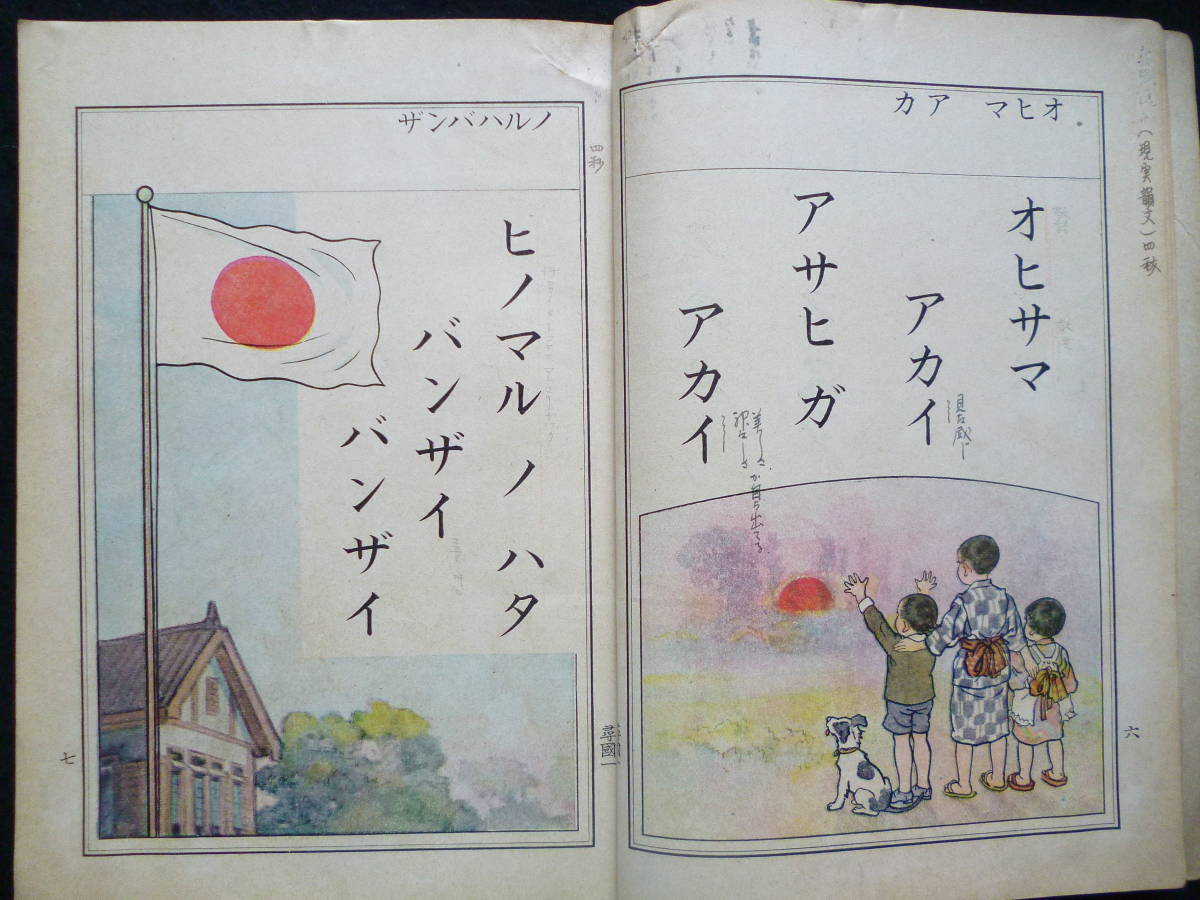 オヒマ アカ
オヒサマ
アカイ
アサヒ ガ
アカイ
六
(現実韻文)四秒
美しさ
が自ら出てる
ノルハバンザ
ヒノマル ノ ハタ
バンザイ
バンザイ
尋國一
七
四秒